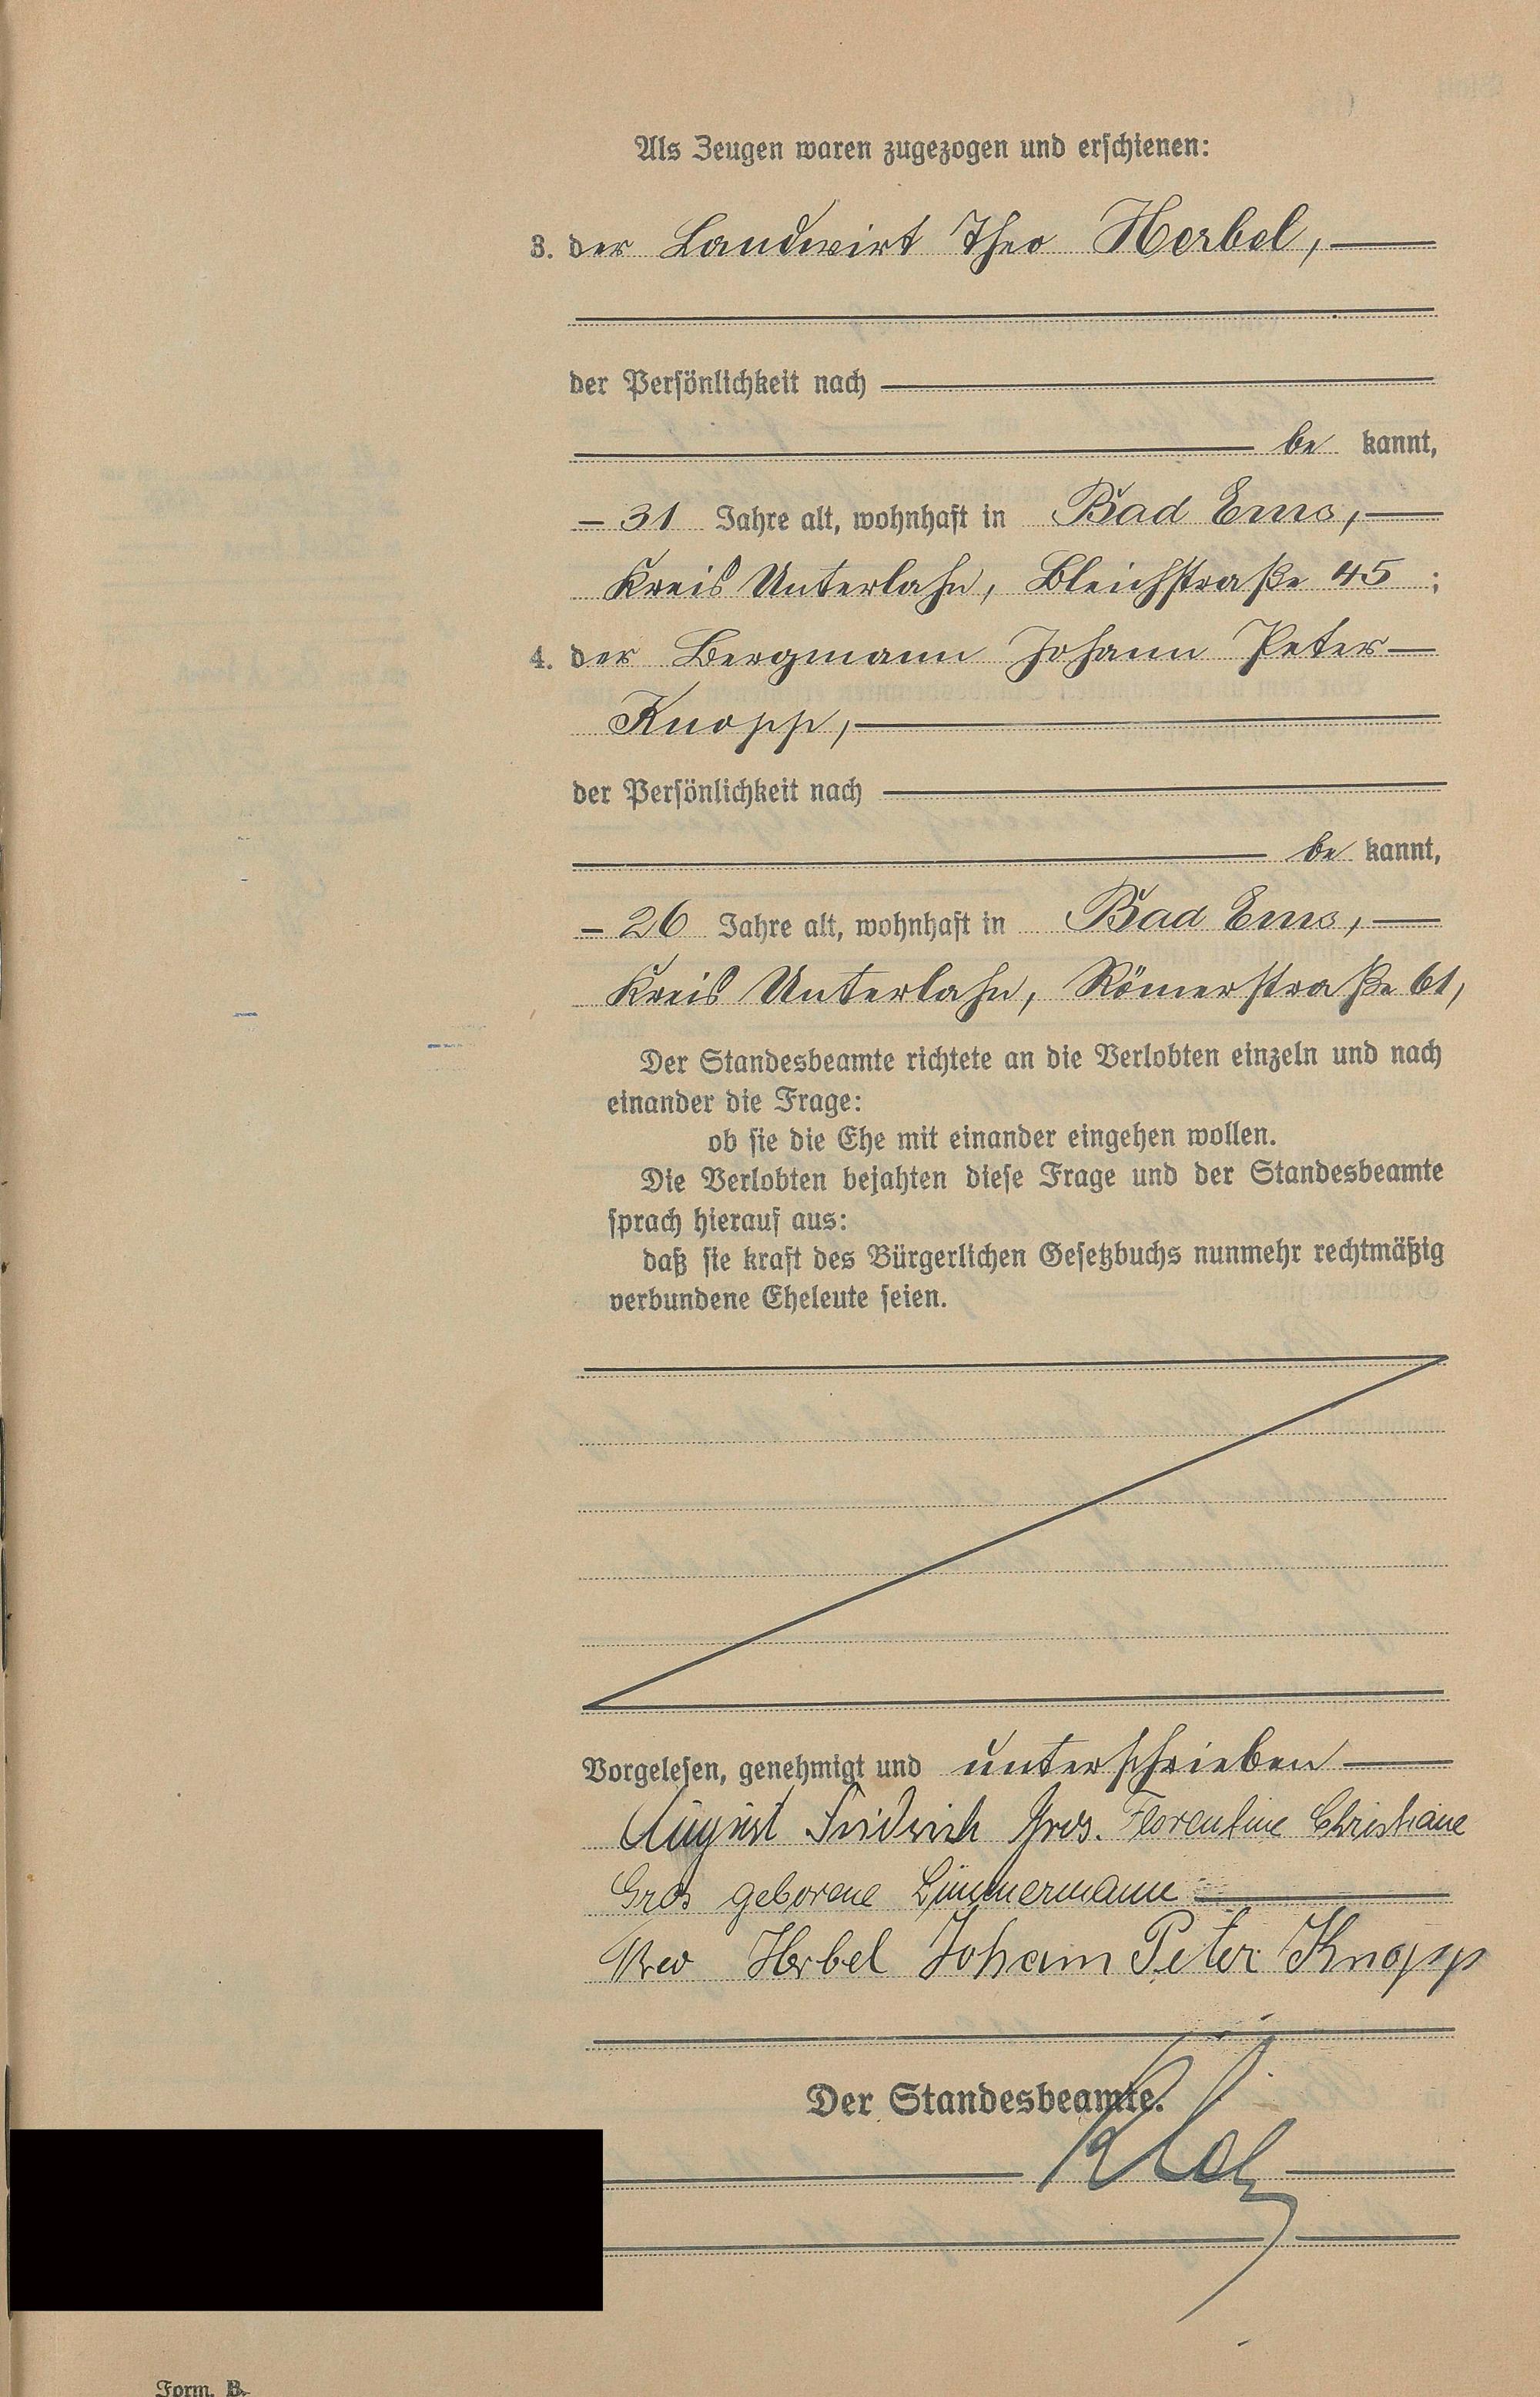 Als Zeugen waren zugezogen und erschienen:
3. der Landwirt Theo Herbel,
der Persönlichkeit nach
be kannt,
31 Jahre alt, wohnhaft in Bad Ems,
Kreis Unterlahn, Bleichstraße 45;
4. der Bergmann Johann Peter
Knopp,
der Persönlichkeit nach
be kannt,
26 Jahre alt, wohnhaft in Bad Ems,
Kreis Unterlahn, Römerstraße 61,
Der Standesbeamte richtete an die Verlobten einzeln und nach
einander die Frage:
ob sie die Ehe mit einander eingehen wollen.
Die Verlobten bejahten diese Frage und der Standesbeamte
sprach hierauf aus:
daß sie kraft des Bürgerlichen Gesetzbuchs nunmehr rechtmäßig
verbundene Eheleute seien.
Vorgelesen, genehmigt und unterschrieben
August Friedrich Gros. Florentine Christiane
Gros geborene
Theo Herbel Johann Peter Knopp
Der Standesbeamte.
Form. B.